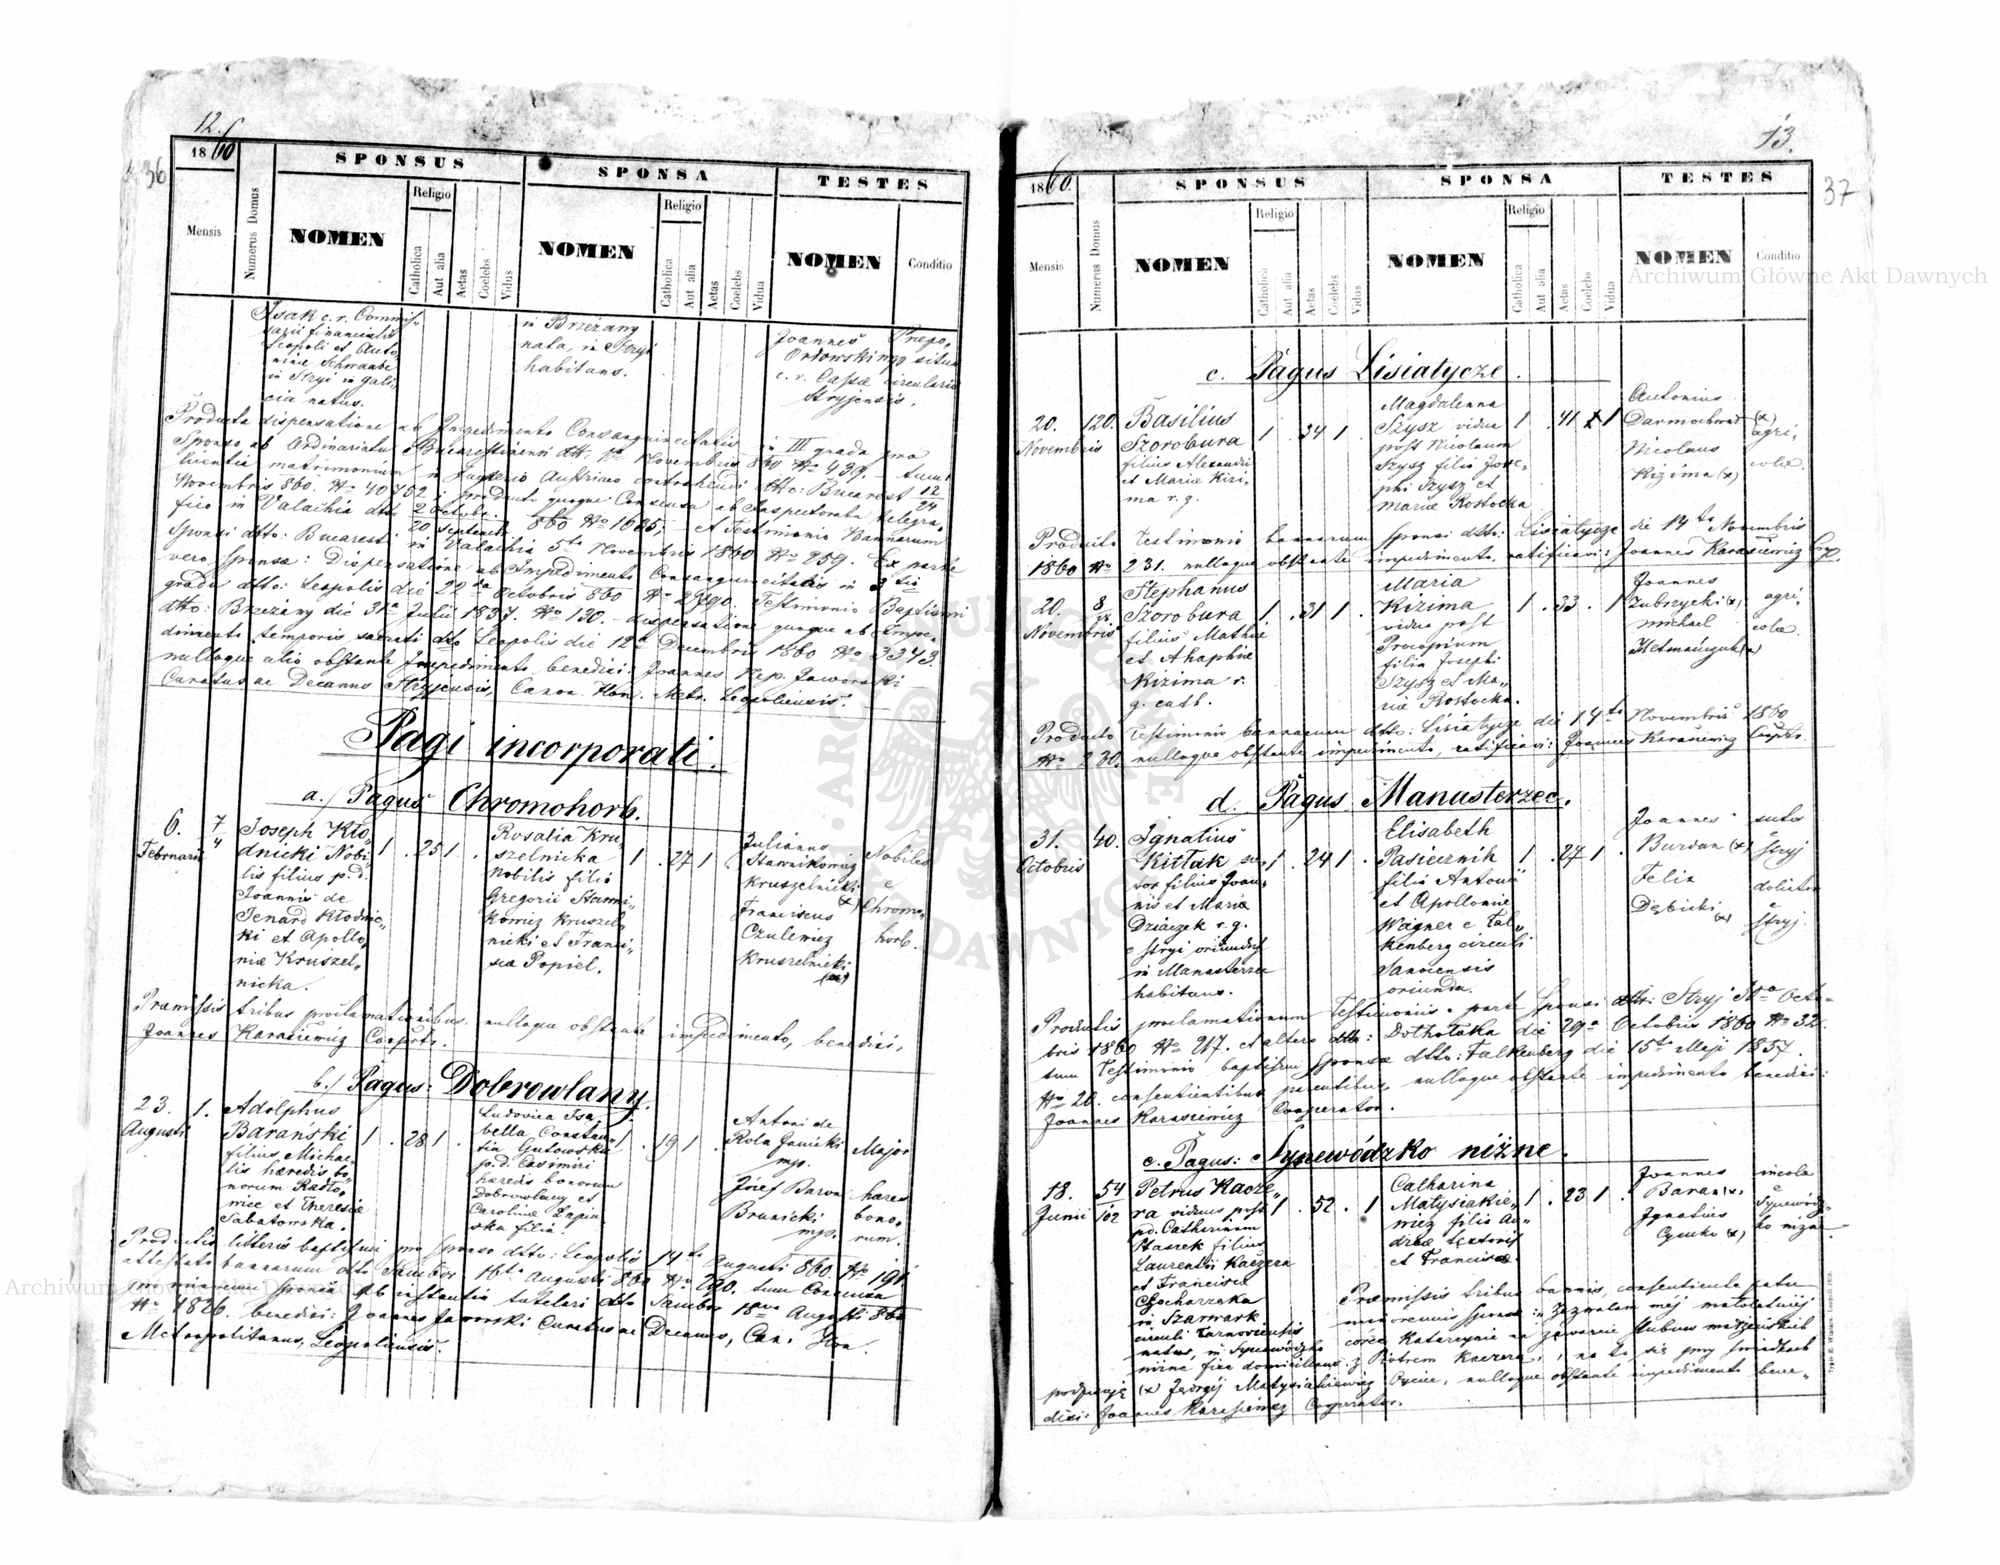 12.
36
1860
SPONSUS
SPONSA
TESTES
Mensis
Numerus Domus
NOMEN
Religio
Catholica
Aut alia
Aetas
Coelebs
Vidus
NOMEN
Religio
Catholica
Aut alia
Aetas
Coelebs
Vidua
NOMEN
Conditio
Isak c. r. Commis-
sarii financialis
Leopoli et Anto,
niae Schwabe
in Stryi in Gali,
cia natus.
in Brzeżany
nata, in Stryi
habitans.
Joannes
Orłowski
c. r. Cassae circularis
Stryjensis.
Producta dispensatione ab Impedimento Consanguineitatis in III gradu pro
Sponso ab Ordinariatu Bucarestinensi dtto: Novembris 860 No 439. tum
licentia matrimonium in Imperio Austriaco contrahendi dtto: Bucarest 12/24
Novembris 860. No 40702; producto quoque Consensu ab Inspectorato telegra,
fico in Valachia dtto 2 Octobr. / 20 Septembr. 860 No 1685; et Testimonio Bannorum
Sponsi dtto: Bucaresti in Valachia 5ta Novembris 1860 No 259. Ex parte
vero Sponsae: Dispensatione ab Impedimento Consanguineitatis in 3tii
gradu dtto: Leopolis die 22da Octobris 860 No 2790. Testimonio Baptismi
dtto: Brzeżany die 31a Julii 1837. No 130. dispensatione quoque ab Impe,
dimento temporis sacrati dtto Leopolis die 12a Decembris 1860 No 3343.
nulloque alio obstante Impedimento benedixi: Joannes Nep. Jaworski
Curatus ac Decanus Stryjensis, Canon. Hon. Metr. Leopoliensis.
Pagi incorporati.
a./ Pagus Chromohorb.
6.
Februarii
7
4
Joseph Kło,
dnicki Nobi,
lis filius p.d.
Joannis de
Jenard Kłodnic,
ki et Apollo,
niae Kruszel,
nicka.
1 . 25 1 .
Rosalia Kru
szelnicka
Nobilis filia
Gregorii Stawni,
kowicz Kruszel,
nicki et Franci,
scae Popiel.
1 . 27 1
Julianus
Stawnikowicz
Kruszelnicki
(x)
Franciscus
Czulewicz
Kruszelnicki
(x)
Nobiles
e
Chromo,
horb.
Praemissis tribus proclamationibus nulloque obstante impedimento, benedixi,
Joannes Karasiewicz Cooprts.
b./ Pagus: Dobrowlany.
23.
Augusti
1.
Adolphus
Barański
filius Michae,
lis haeredis bo,
norum Radło,
wice et Theresiae
Sabatowska.
1 . 28 1 .
Ludovica Isa,
bella Constan,
tia Gutowska
p.d. Casimiri
haeredis bonorum
Dobrowlany et
Carolinae Łapiń,
ska filia.
1 . 19 1 .
Antoni de
Rola Janicki
mp.
Józef Baron
Brunicki
mp.
Major
haeres
bono,
rum.
Productis litteris baptismi pro Sponso dtto: Leopolis 14ta Augusti 860. No 191.
attestato bannorum dtto Sambor 16ta Augusti 860 No 290. tum Consensu
pro minorenni sponsa ab instantia tutelari dtto Sambor 18va Augusti 860
No 1826. benedixi: Joannes Jaworski Curatus ac Decanus, Can. Hon.
Metropolitanus, Leopoliensis.
13.
37
1860.
SPONSUS
SPONSA
TESTES
Mensis
Numerus Domus
NOMEN
Religio
Catholica
Aut alia
Aetas
Coelebs
Vidus
NOMEN
Religio
Catholica
Aut alia
Aetas
Coelebs
Vidua
NOMEN
Conditio
c. Pagus Lisiatycze.
20.
Novembris
120.
Basilius
Szorobura
filius Alexandri
et Mariae Kizi,
ma r. g.
1 . 34 1 .
Magdalenna
Szysz vidua
post Nicolaum
Szysz filia Jose,
phi Szysz et
Mariae Rostocka
1 . 41 1
Antonius
Darmochwał (x)
Nicolaus
Kizima (x)
agri,
colae.
Producto testimonio bannorum sponsi dtto: Lisiatycze die 14ta Novembris
1860 No 231. nulloque obstante impedimento, ratificavi: Joannes Karasiewicz Coop.
20.
Novembris
8
Stephanus
Szorobura
filius Mathiae
et Ahaphiae
Kizima r.
g. cath.
1 . 31 1 .
Maria
Kizima
vidua post
Procopium
filia Josephi
Szysz et Ma,
riae Rostocka.
1 . 33 . 1
Joannes
Zubrzycki (x)
Michael
Hetmańczuk (x)
agri,
colae.
Producto testimonio bannorum dtto: Lisiatycze die 14ta Novembris 1860
No 230. nulloque obstante impedimento, ratificavi: Joannes Karasiewicz Cooprts.
d. Pagus Manusterzec.
31.
Octobris
40.
Ignatius
Kitłak su,
tor filius Joan,
nis et Mariae
Dziaczek r. g.
e Stryi oriundus
in Manasterzec
habitans.
1 . 24 1 .
Elisabeth
Pasiecznik
filia Antonii
et Apolloniae
Wagner e Fal,
kenberg circuli
Sanocensis
oriunda.
1 . 27 1 .
Joannes
Burdan (x)
Felix
Dębicki
(x)
sutor
Stryj
doliator
e
Stryj.
Productis proclamationum Testimoniis a parte Sponsi dtto: Stryj 30a Octo-
bris 1860 No 217. et altero dtto: Dothołuka die 29a Octobris 1860 No 32.
tum Testimonio baptismi Sponsae dtto: Falkenberg die 15ta Maji 1857.
No 20. consentientibus parentibus, nulloque obstante impedimento benedixi:
Joannes Karasiewicz Cooperator.
e. Pagus: Synewódzko niżne.
18.
Junii
54
102
Petrus Kacze,
ra viduus post
p.d. Catharinam
Staszek filius
Laurentii Kaczera
et Franciscae
Czocharzaka
in Szarwark
circuli Tarnoviensis
natus, in Synewódzko
niżne fixe domicilians.
1 . 52 . 1
Catharina
Matysiakie,
wicz filia An,
dreae textoris
et Franciscae.
1 . 23 1 .
Joannes
Baran (x)
Ignatius
Cynko (x)
incola
e
Synewódz,
ko niżne.
Praemissis tribus bannis, consentiente patre
minorennis sponsae: „Zezwalam mej małoletniej
córce Katarzynie na zawarcie ślubu małżeńskich
z Piotrem Kaczera, i na to się przy świadkach
podpisuję (x) Jędrzej Matysiakiewicz Ojciec, nulloque obstante impedimento bene,
dixi: Joannes Karasiewicz Cooperator.
Archiwum Główne Akt Dawnych
Archiwum Główne Akt Dawnych
ARCHIWUM GŁÓWNE AKT DAWNYCH